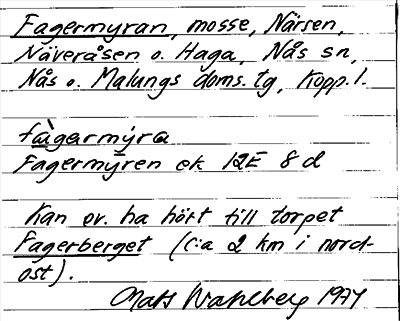 Fagermyran, mosse, Närsen,
Näveråsen o. Haga, Nås sn,
Nås o. Malungs doms. tg, Kopp. l.
fàgarmýra
Fagermyren ek 12E 8d
Kan ev. ha hört till torpet
Fagerberget (c:a 2 km i nord-
ost).
Mats Wahlberg 1974